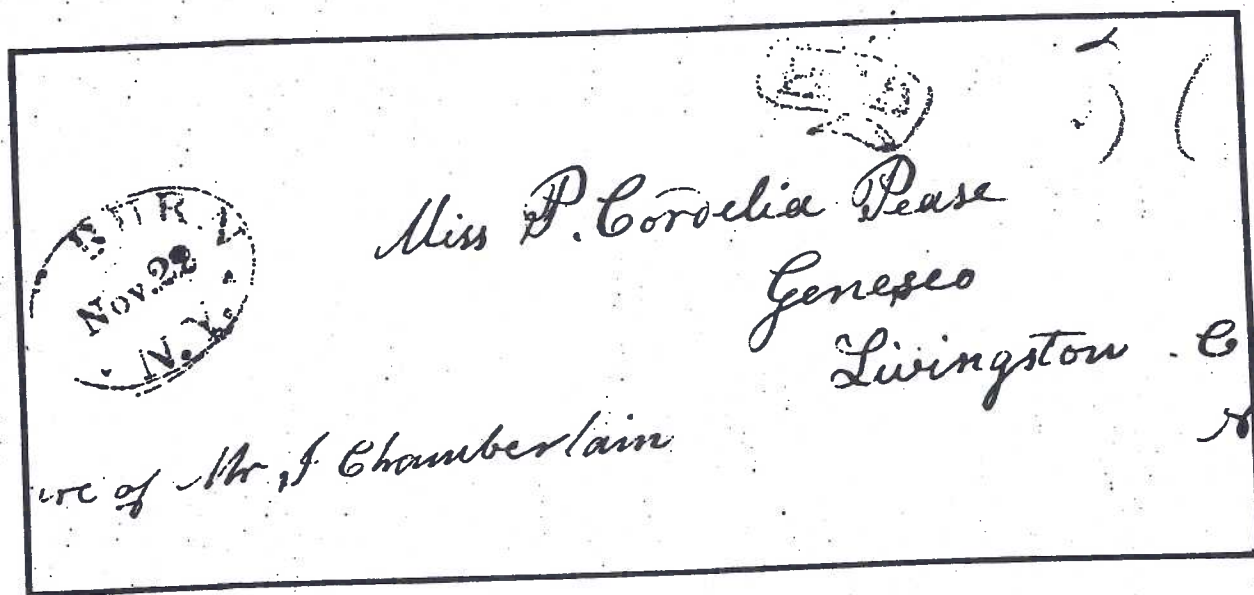 Nov. 22
N.Y.
Miss P. Cordelia Pease
Geneseo
Livingston . C
of Mr J Chamberlain